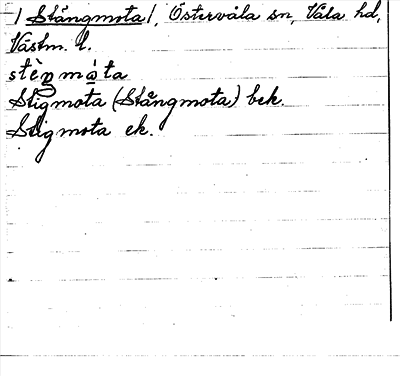 /Stångmota/, Östervåla sn, Våla hd,
Västm. l.
stèŋmò̱ta
Stigmota (Stångmota) bek.
Stigmota ek.